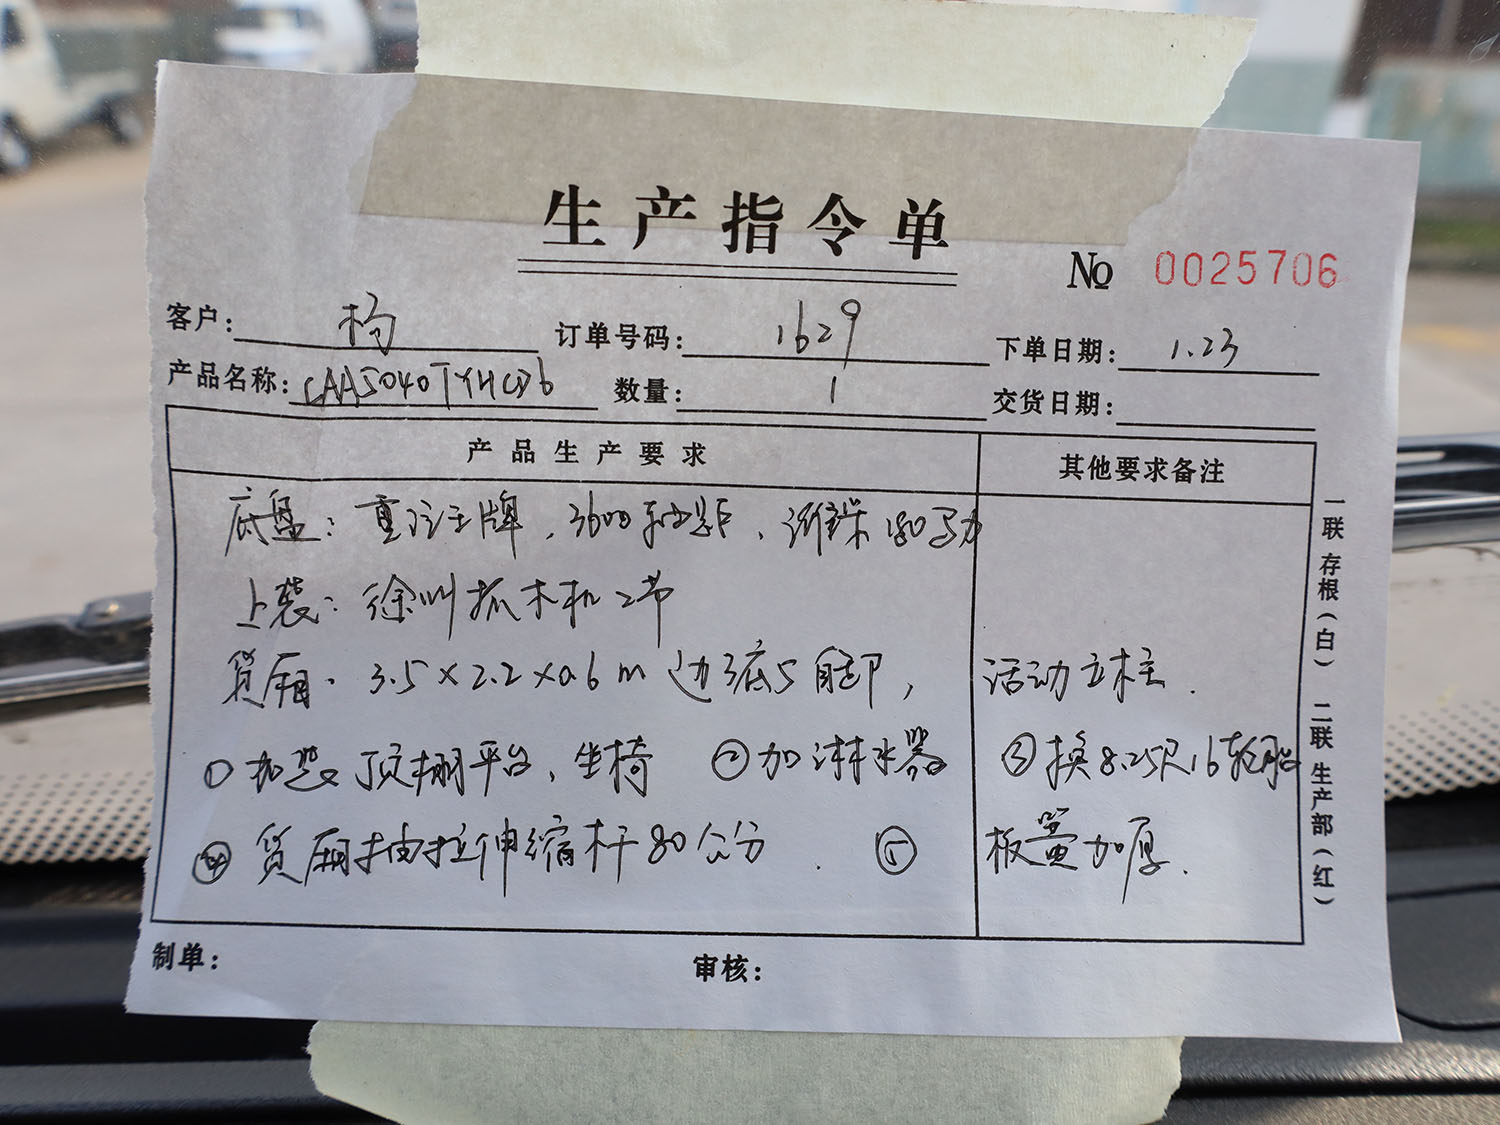 生产指令单
No 0025706
客户: 杨 订单号码: 1629 下单日期: 1.23
产品名称: CAA5040TYHCD6 数量: 1 交货日期:
产品生产要求 其他要求备注
底盘: 重汽王牌, 3600轴距, 潍柴 180马力
上装: 徐州抓木机2节
货厢. 3.5×2.2×0.6m 边3底5自卸, 活动立柱.
①加装顶棚平台、坐椅 ②加淋水器 ③换8.25尺16轮胎
④货厢抽拉伸缩杆80公分. ⑤板簧加厚.
制单: 审核:
一联存根(白) 二联生产部(红)